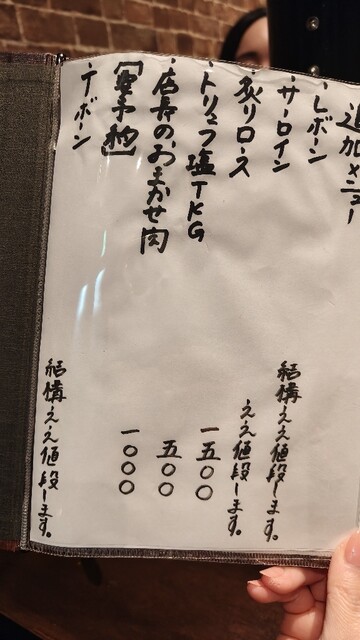 追加メニュー
・Lボーン
・サーロイン 結構ええ値段します。
・炙りロース ええ値段します。
・トリュフ塩TKG 一五〇〇
・店長のおまかせ肉 五〇〇
【要予約】 一〇〇〇
・Tボーン 結構ええ値段します。